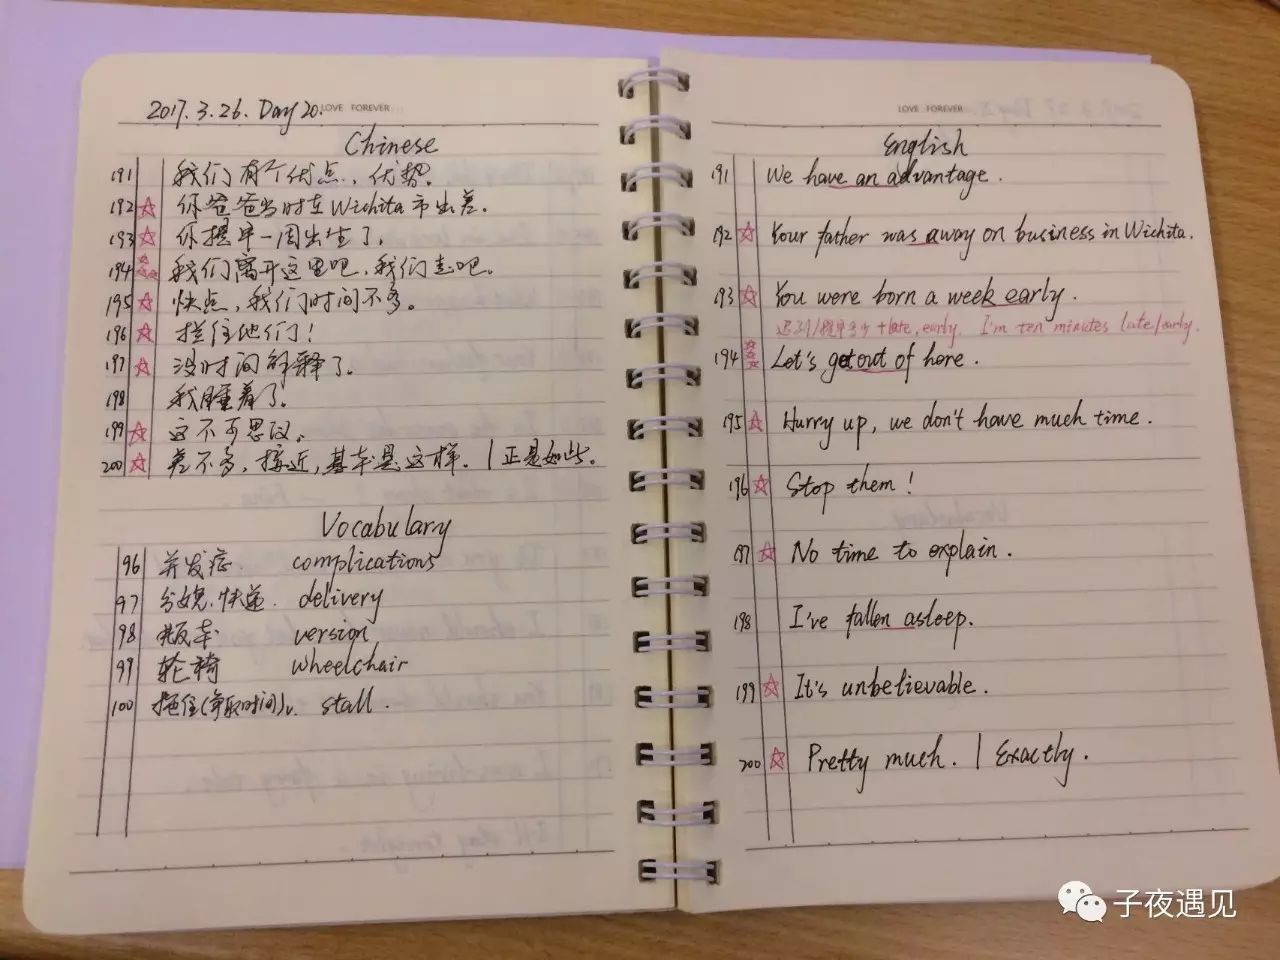 2017.3.26. Day 20.
LOVE FOREVER
Chinese
191 我们有个优点、优势。
192 ☆ 你爸爸当时在Wichita市出差。
193 ☆ 你提早一周出生了。
194 ☆☆☆ 我们离开这里吧,我们走吧。
195 ☆ 快点,我们时间不多。
196 ☆ 拦住他们!
197 ☆ 没时间解释了。
198 我睡着了。
199 ☆ 这不可思议。
200 ☆ 差不多,接近,基本是这样. | 正是如此。
Vocabulary
96 并发症. complications
97 分娩.快递. delivery
98 版本 version
99 轮椅 wheelchair
100 拖住(争取时间)v. stall.
LOVE FOREVER
English
191 We have an advantage.
192 ☆ Your father was away on business in Wichita.
193 ☆ You were born a week early.
迟到/提早多少+late, early. I'm ten minutes late/early.
194 ☆☆☆ Let's get out of here.
195 ☆ Hurry up, we don't have much time.
196 ☆ Stop them!
197 ☆ No time to explain.
198 I've fallen asleep.
199 ☆ It's unbelievable.
200 ☆ Pretty much. | Exactly.
子夜遇见